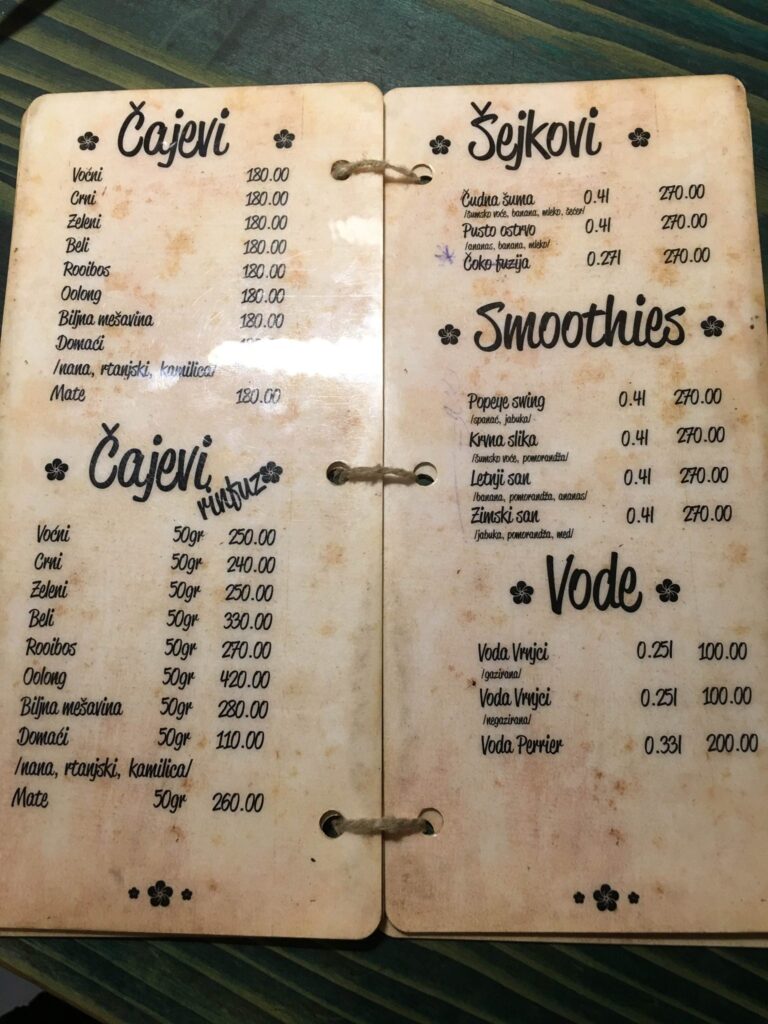 Čajevi
Voćni 180.00
Crni 180.00
Zeleni 180.00
Beli 180.00
Rooibos 180.00
Oolong 180.00
Biljna mešavina 180.00
Domaći
/nana, rtanjski, kamilica/
Mate 180.00
Čajevi rinfuz
Voćni 50gr 250.00
Crni 50gr 240.00
Zeleni 50gr 250.00
Beli 50gr 330.00
Rooibos 50gr 270.00
Oolong 50gr 420.00
Biljna mešavina 50gr 280.00
Domaći 50gr 110.00
/nana, rtanjski, kamilica/
Mate 50gr 260.00
Šejkovi
Čudna šuma 0.4l 270.00
/šumsko voće, banana, mleko, šećer/
Pusto ostrvo 0.4l 270.00
/ananas, banana, mleko/
Čoko fuzija 0.27l 270.00
Smoothies
Popeye swing 0.4l 270.00
/spanać, jabuka/
Krvna slika 0.4l 270.00
/šumsko voće, pomorandža/
Letnji san 0.4l 270.00
/banana, pomorandža, ananas/
Zimski san 0.4l 270.00
/jabuka, pomorandža, med/
Vode
Voda Vrnjci 0.25l 100.00
/gazirana/
Voda Vrnjci 0.25l 100.00
/negazirana/
Voda Perrier 0.33l 200.00